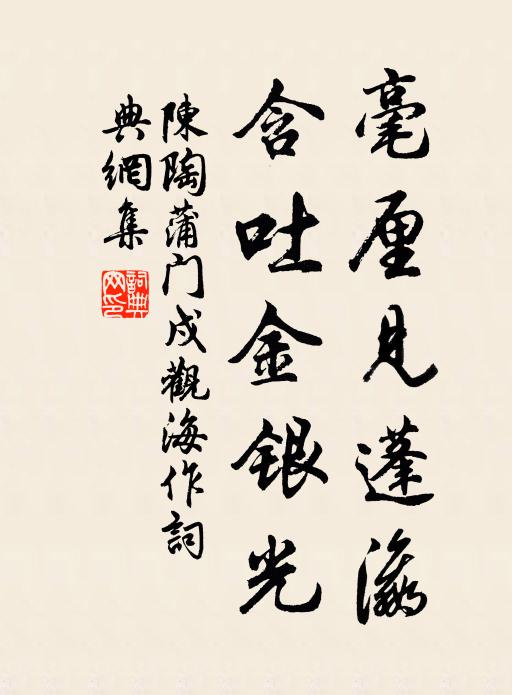 毫厘見蓬瀛
含吐金銀光
陳陶蒲门戍觀海作詞
典網集
詞典
网印